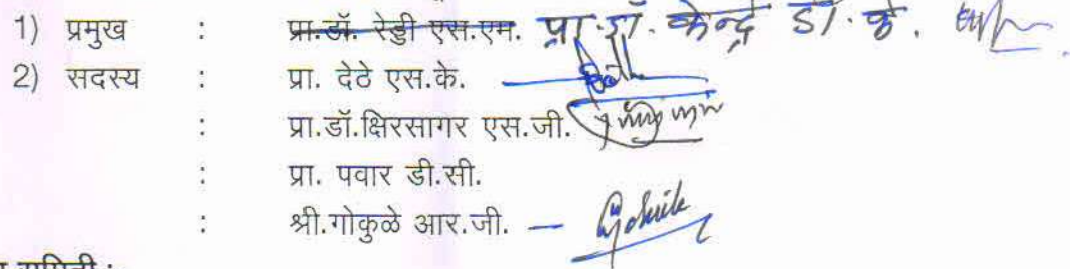 1) प्रमुख : प्रा.डॉ. रेड्डी एस.एम. प्रा.डॉ. केन्द्रे डी. के.
2) सदस्य : प्रा. देठे एस.के.
: प्रा.डॉ.क्षिरसागर एस.जी.
: प्रा. पवार डी.सी.
: श्री.गोकुळे आर.जी. –
समिती :